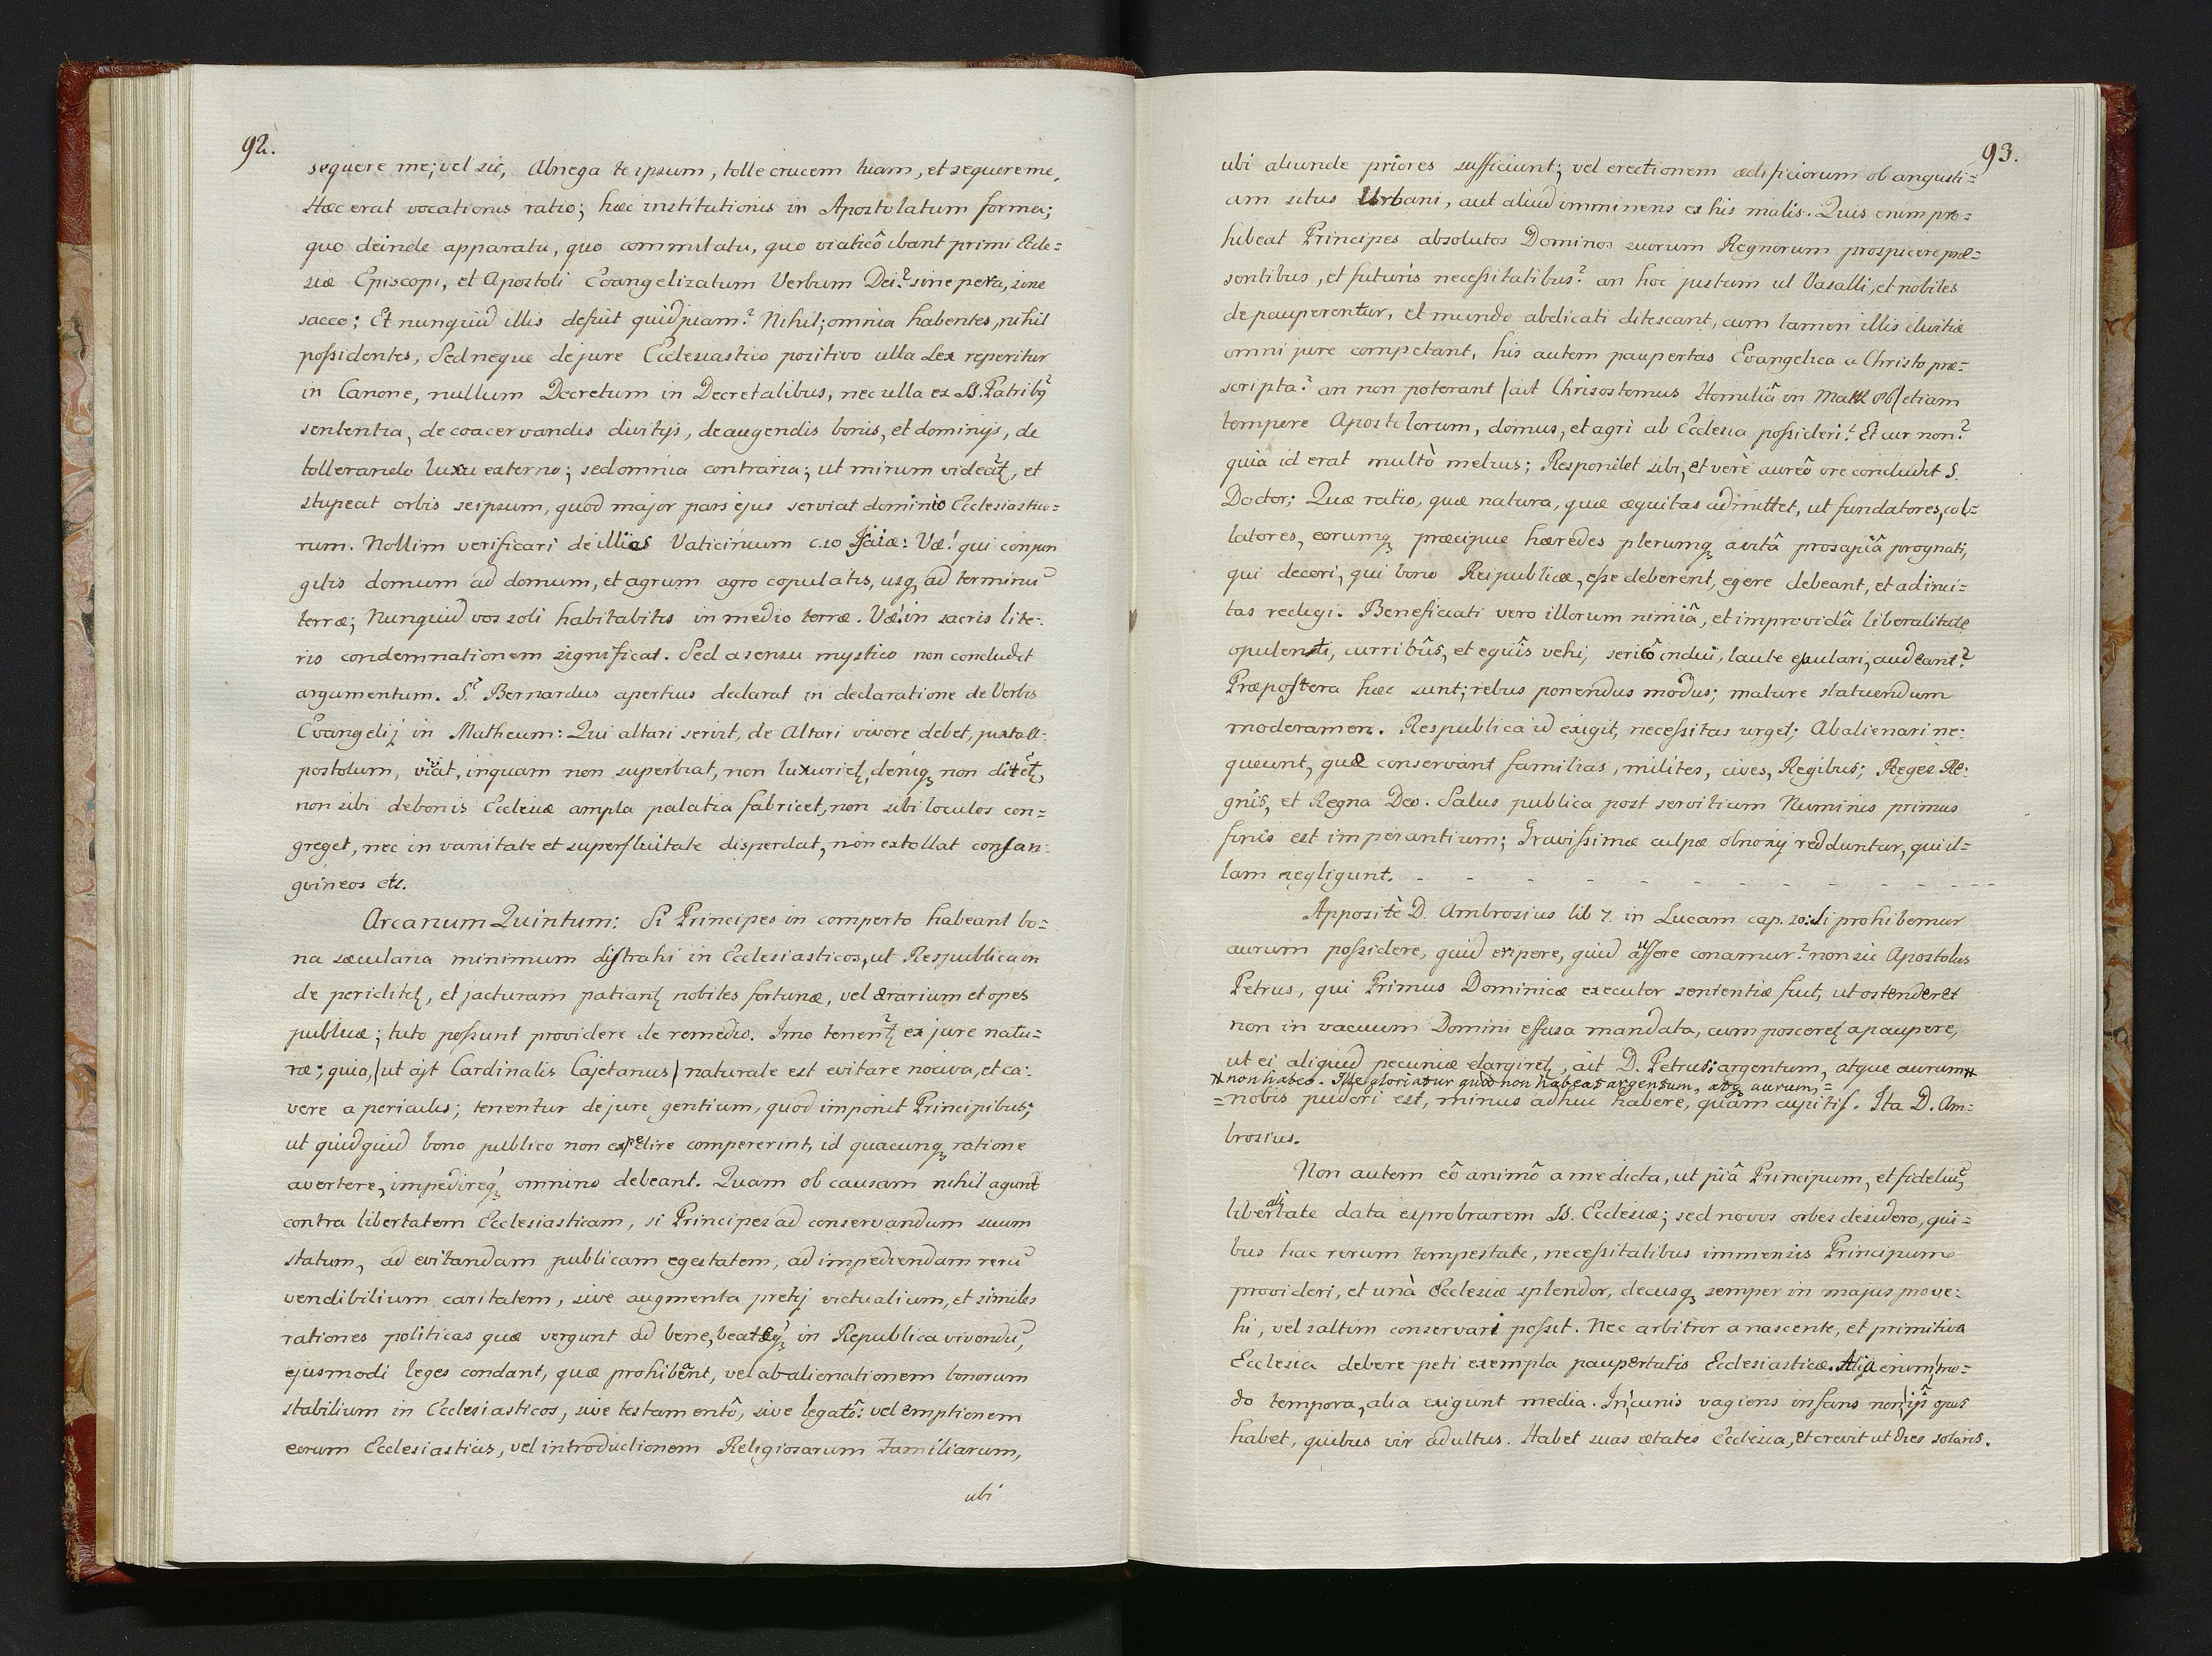 92.
sequere me; vel sic, Abnega te ipsum, tolle crucem tuam, et sequere me.
Hæc erat vocationis ratio; hæc institutionis in Apostolatum forma;
quo deinde apparatu, quo commitatu, quo viaticô ibant primi Eccle=
siæ Episcopi, et Apostoli Evangelizatum Verbum Dei? sine pera, sine
sacco; Et nunquid illis defuit quidpiam? Nihil; omnia habentes, nihil
possidentes, Sed neque de jure Ecclesiastico positivo ulla Lex reperitur
in Canone, nullum Decretum in Decretalibus, nec ulla ex SS. Patribq
sententia, de coacervandis divitijs, de augendis bonis, et dominijs, de
tollerando luxu externo; sed omnia contraria; ut mirum videatʒ, et
stupeat orbis seipsum, quod major pars ejus serviat dominio Ecclesiastico=
rum. Nollim verificari de illies Vaticinium c.10 Isaiæ: Væ! qui conjun
gitis domum ad domum, et agrum agro copulatis, usqʒ ad terminū
terræ; Nunquid vos soli habitabitis in medio terræ. Væ! in sacris lite=
ris condemnationem significat. Sed a sensu mystico non concludit
argumentum. S. Bernardus apertius declarat in declaratione de Verbis
Evangelij in Matheum: Qui altari servit, de Altari vivere debet, juxta A=
postolum, vivat, inquam non superbiat, non luxurietʒ, deniqʒ non ditetʒ,
non sibi de bonis Ecclesiæ ampla palatia fabricet, non sibi loculos con=
greget, nec in vanitate et superfluitate disperdat, non extollat consan=
guineos etc.
Arcanum Quintum: Si Principes in comperto habeant bo=
na sæcularia minimum distrahi in Ecclesiasticos, ut Respublica in
de periclitetʒ, et jacturam patiantʒ nobiles fortunæ, vel ærarium et opes
publicæ; tuto possunt providere de remedio. Imo tenentʒ ex jure natu=
ræ; quia, /ut ajt Cardinalis Cajetanus/ naturale est evitare nociva, et ca=
vere a periculis; tenentur de jure gentium, quod imponit Principibus;
ut quidquid bono publico non expedire compererint, id quacunqʒ ratione
avertere, impedireqʒ omnino debeant. Quam ob causam nihil agunt
contra libertatem Ecclesiasticam, si Principes ad conservandum suum
statum, ad evitandam publicam egestatem, ad impediendam rerū
vendibilium caritatem, sive augmenta pretij victualium, et similes
rationes politicas quæ vergunt ad bene, beateqʒ in Republica vivendū,
ejusmodi leges condant, quæ prohibeant, vel ab-alienationem bonorum
stabilium in Ecclesiasticos, sive testamentô, sive legatô: vel emptionem
eorum Ecclesiasticis, vel introductionem Religiosarum Familiarum,
ubi
93.
ubi aliunde priores sufficiunt; vel erectionem ædificiorum ob angusti=
am situs Urbani, aut aliud imminens ex his malis. Quis enim pro=
hibeat Principes absolutos Dominos suorum Regnorum prospicere præ=
sentibus, et futuris necessitatibus? an hoc justum ut Vasalli, et nobiles
depauperentur, et mundo abdicati ditescant, cum tamen illis divitiæ
omni jure competant, his autem paupertas Evangelica a Christo præ=
scripta? an non poterant /ait Chrisostomus Homiliâ in Matt 86/ etiam
tempore Apostolorum, domus, et agri ab Ecclesia possideri? Et cur non?
quia id erat multò melius; Respondet sibi, et verè aureô ore concludit S.
Doctor; Quæ ratio, quæ natura, quæ æquitas admittet, ut fundatores, col=
latores, eorumqʒ præcipue hæredes plerumqʒ avitâ prosapiâ prognati,
qui decori, qui bono Reipublicæ, esse deberent, egere debeant, et ad inci=
tas redegi. Beneficiati vero illorum nimiâ, et improvidâ liberalitate
opulenti, curribûs, et equîs vehi, sericô indui, laute epulari, audeant?
Præpostera hæc sunt; rebus ponendus modus; mature statuendum
moderamen. Respublica id exigit, necessitas urget; Abalienari ne=
queunt, quæ conservant familias, milites, cives, Regibus; Reges Re=
gnis, et Regna Deo. Salus publica post servitium Numinis primus
finis est imperantium; Gravissimæ culpæ obnoxij redduntur, qui il=
lam negligunt. - - - - - - - - - - - -
Appositè D. Ambrosius lib 7. in Lucam cap. 20: Si prohibemur
aurum possidere, quid eripere, quid auffere conamur? non sic Apostolus
Petrus, qui Primus Dominicæ executor sententiæ fuit, ut ostenderet
non in vacuum Domini effusa mandata, cum posceretʒ a paupere,
ut ei aliquid pecuniæ elargiretʒ, ait D. Petrus: argentum, atque aurum #
# non habeo. Ille gloriatur quod non habeat argentum, atqʒ aurum, =
= nobis pudori est, minus adhuc habere, quam cupitis. Ita D. Am=
brosius.
Non autem eô animô a me dicta, ut piâ Principum, et fideliū,
liberalitate data exprobrarem SS. Ecclesiæ; sed novos orbes desidero, qui=
bus hac rerum tempestate, necessitatibus immensis Principum
provideri, et unà Ecclesiæ splendor, decusqʒ semper in majus prove=
hi, vel saltim conservari possit. Nec arbitror a nascente, et primitiva
Ecclesia debere peti exempla paupertatis Ecclesiasticæ. Alia enim, mo=
do tempora, alia exigunt media. In cunis vagiens infans non ijs opus
habet, quibus vir adultus. Habet suas ætates Ecclesia, et crevit ut dies solaris.